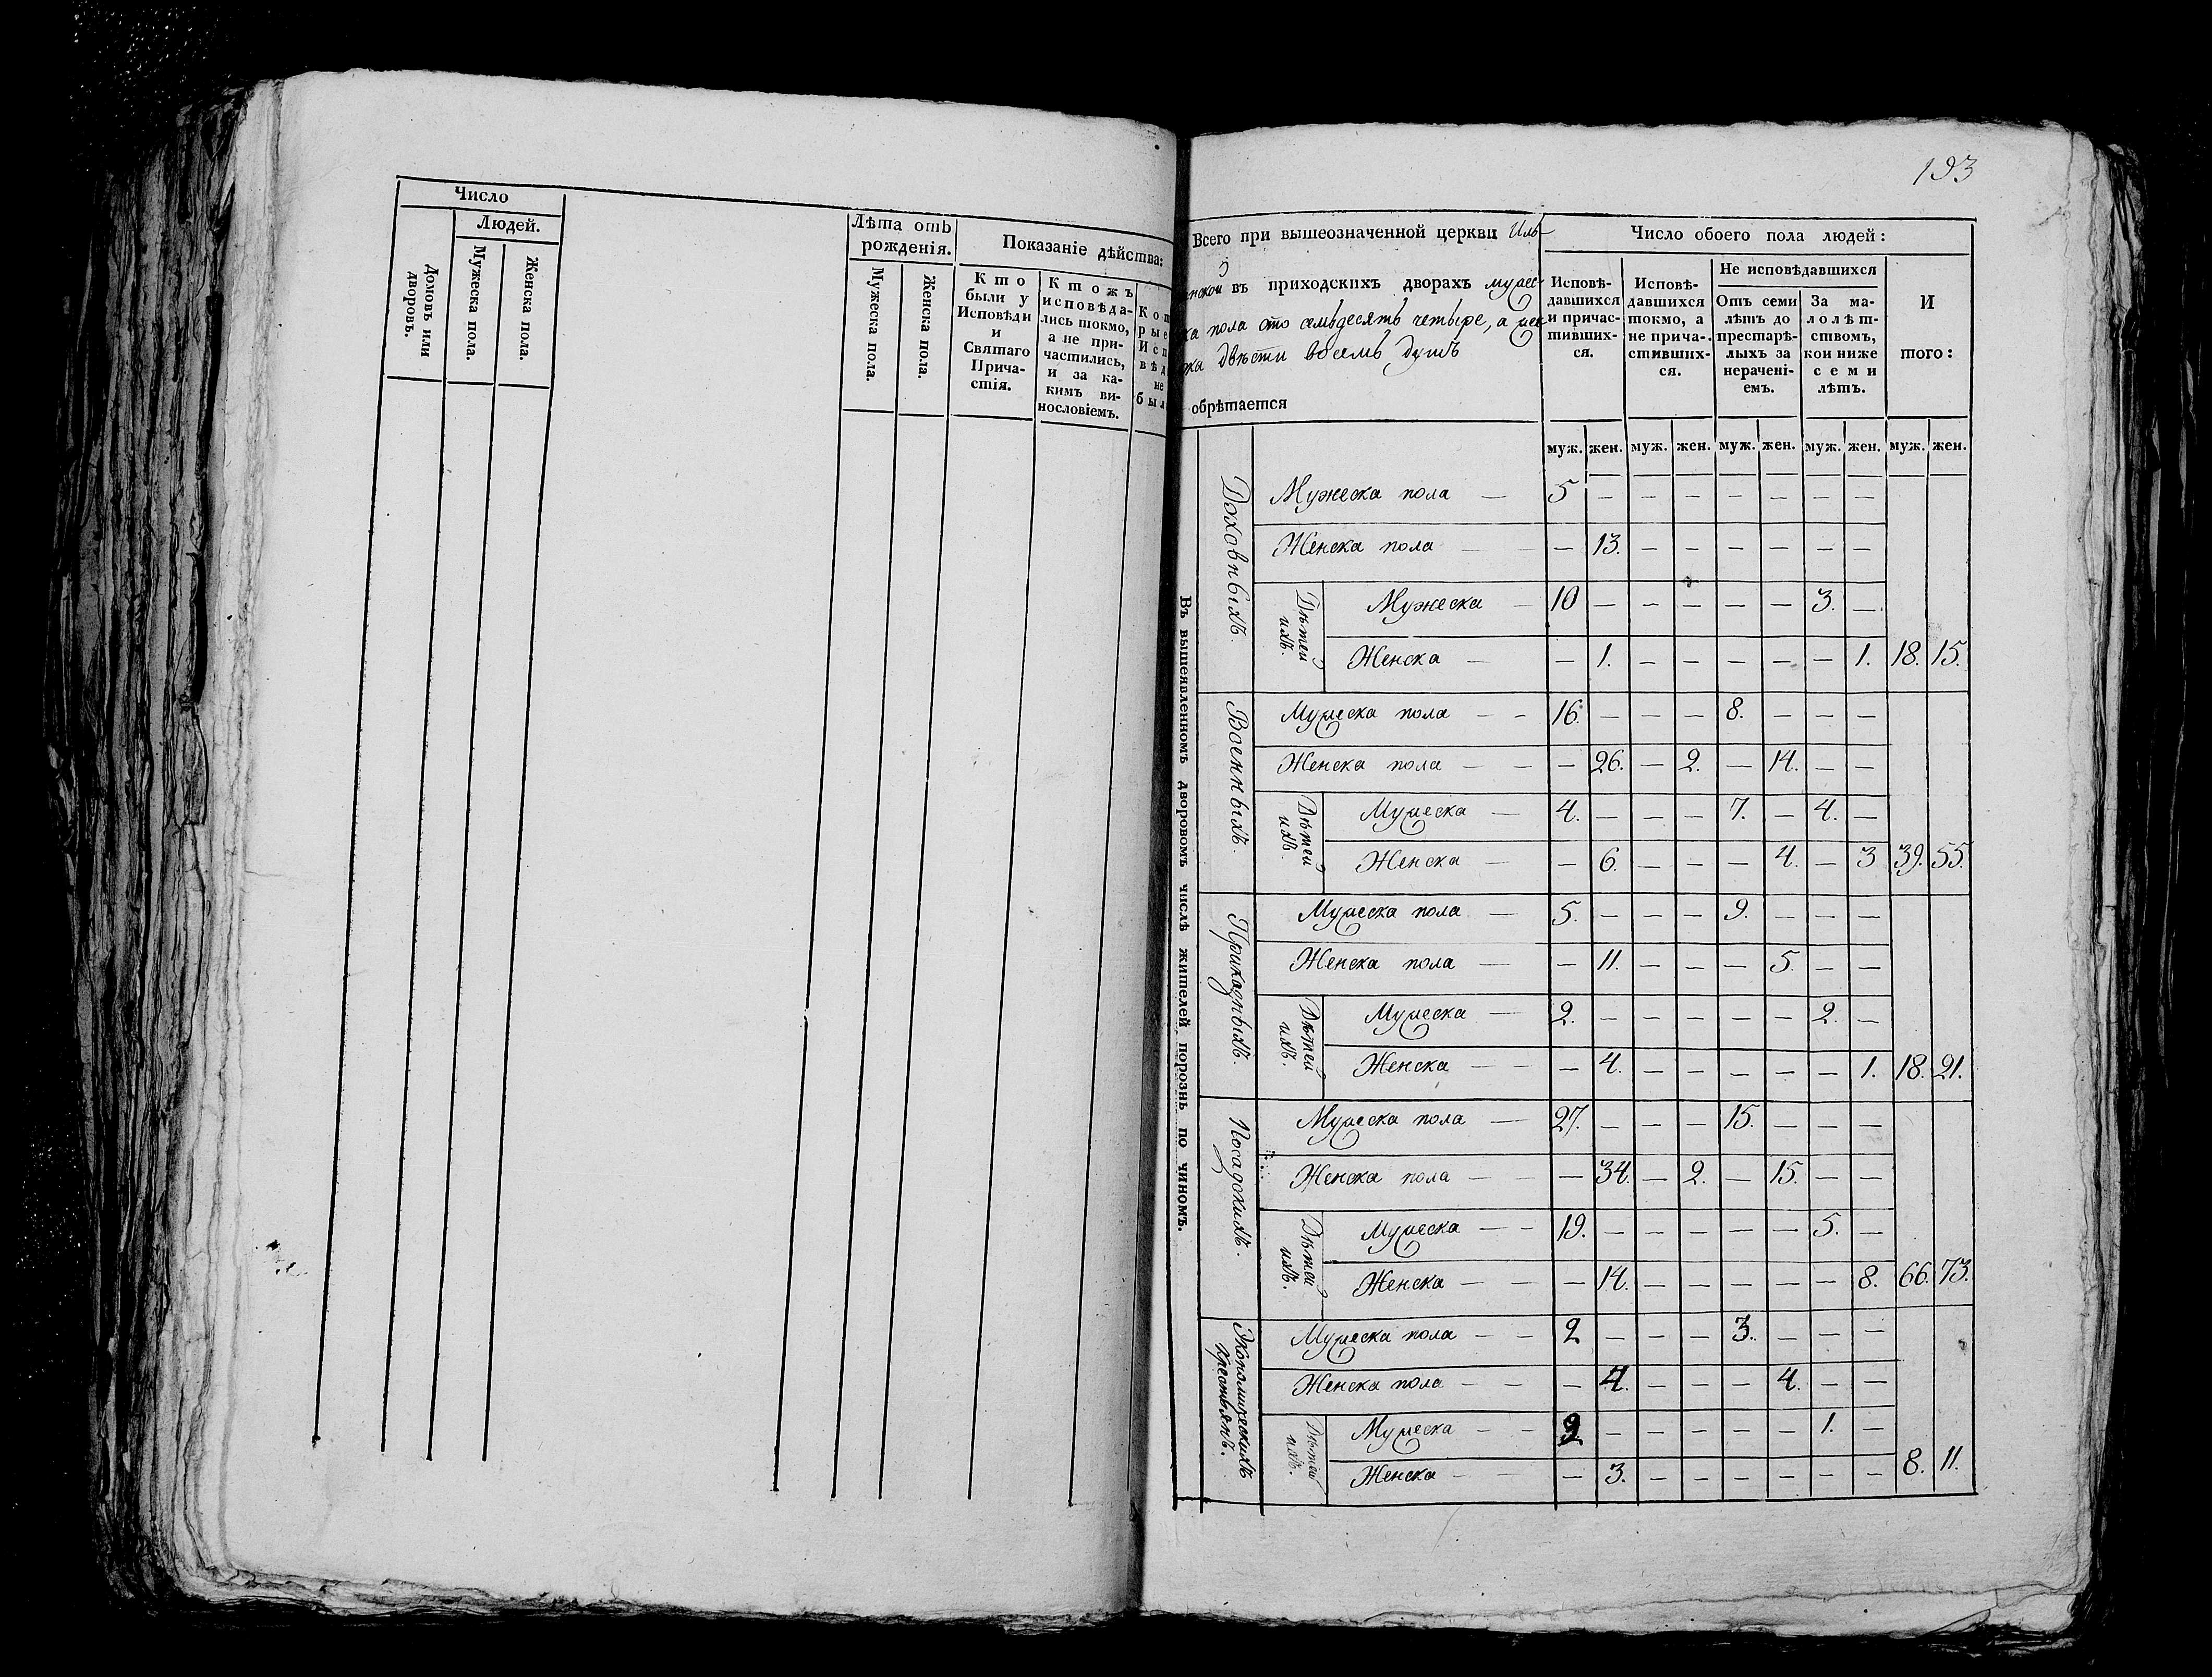 Число
Людей.
Домовъ или дворовъ.
Мужеска пола.
Женска пола.
Лѣта отъ
рожденія.
Мужеска пола.
Женска пола.
Показаніе дѣйства:
Кто
были у
Исповѣди
и
Святаго
Прича-
стія.
Ктожъ
исповѣда-
лись токмо,
а не при-
частились,
и за ка-
кимъ ви-
нословіемъ.
Кот
рые
Исп
вѣд
не
был
193
Всего при вышеозначенной церкви Иль-
инской въ приходскихъ дворахъ мужес-
ка пола сто семьдесятъ четыре, а жен
ска двѣсти восемь душъ
обрѣтается
Число обоего пола людей:
Исповѣ-
давшихся
и причас-
тивших-
ся.
Исповѣ-
давшихся
токмо, а
не прича-
стивших-
ся.
Не исповѣдавшихся
Отъ семи
лѣтъ до
престарѣ-
лыхъ за
нераченi-
емъ.
За ма-
лолѣт-
ствомъ,
кои ниже
семи
лѣтъ.
И
того:
муж. жен. муж. жен. муж. жен. муж. жен. муж. жен.
Въ вышеявленномъ дворовомъ числѣ жителей порознь по чиномъ.
Духовныхъ.
Мужеска пола — 5 — — — — — — —
Женска пола — — — 13. — — — — — —
Дѣтей ихъ.
Мужеска — 10 — — — — — 3. —
Женска — — 1. — — — — — 1. 18. 15.
Военныхъ.
Мужеска пола — — 16. — — — 8. — — —
Женска пола — — — 26. — 2. — 14. — —
Дѣтей ихъ.
Мужеска — 4. — — — 7. — 4. —
Женска — — 6. — — — 4. — 3 39. 55.
Приказныхъ.
Мужеска пола — 5. — — — 9. — — —
Женска пола — — 11. — — — 5. — —
Дѣтей ихъ.
Мужеска — 2. — — — — — 2. —
Женска — — — 4. — — — — — 1. 18. 21.
Посадскихъ.
Мужеска пола — 27. — — — 15. — — —
Женска пола — — — 34. — 2. — 15. — —
Дѣтей ихъ.
Мужеска — — 19. — — — — — 5. —
Женска — — — 14. — — — — — 8. 66. 73.
Экономическихъ крестьянъ.
Мужеска пола — — 2 — — — 3. — — —
Женска пола — — — 4. — — — 4. — —
Дѣтей ихъ.
Мужеска — — 2 — — — — — 1. —
Женска — — — 3. — — — — — — 8. 11.